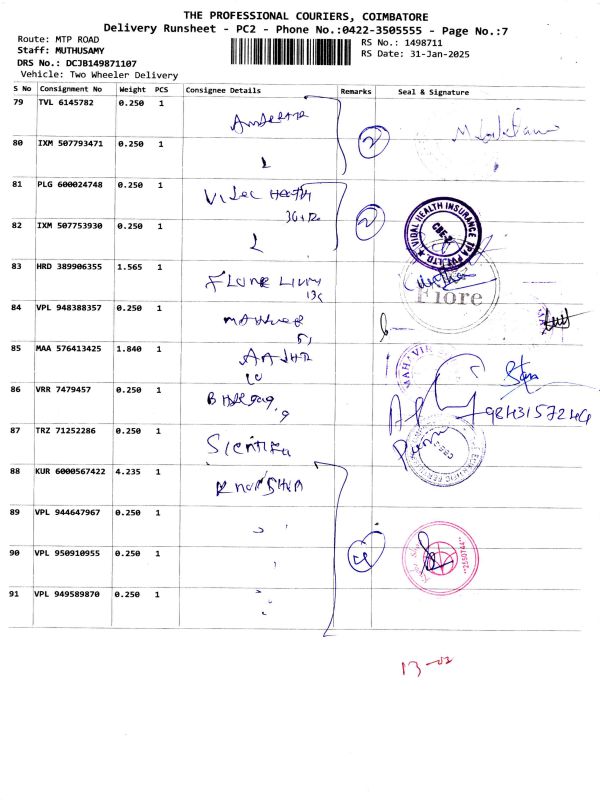 THE PROFESSIONAL COURIERS, COIMBATORE
Delivery Runsheet - PC2 - Phone No.:0422-3505555 - Page No.:7
Route: MTP ROAD
Staff: MUTHUSAMY
DRS No.: DCJB149871107
Vehicle: Two Wheeler Delivery
RS No.: 1498711
RS Date: 31-Jan-2025
S No Consignment No Weight PCS Consignee Details Remarks Seal & Signature
79 TVL 6145782 0.250 1
80 IXM 507793471 0.250 1 2
81 PLG 600024748 0.250 1 VIDAL HEALTH
82 IXM 507753930 0.250 1 2 VIDAL HEALTH INSURANCE TPA PVT. LTD. CBE-2
83 HRD 389906355 1.565 1 Fiore
84 VPL 948388357 0.250 1
85 MAA 576413425 1.840 1 MAHAVIR
86 VRR 7479457 0.250 1 9843157244
87 TRZ 71252286 0.250 1
88 KUR 6000567422 4.235 1
89 VPL 944647967 0.250 1
90 VPL 950910955 0.250 1 4
91 VPL 949589870 0.250 1
13-02